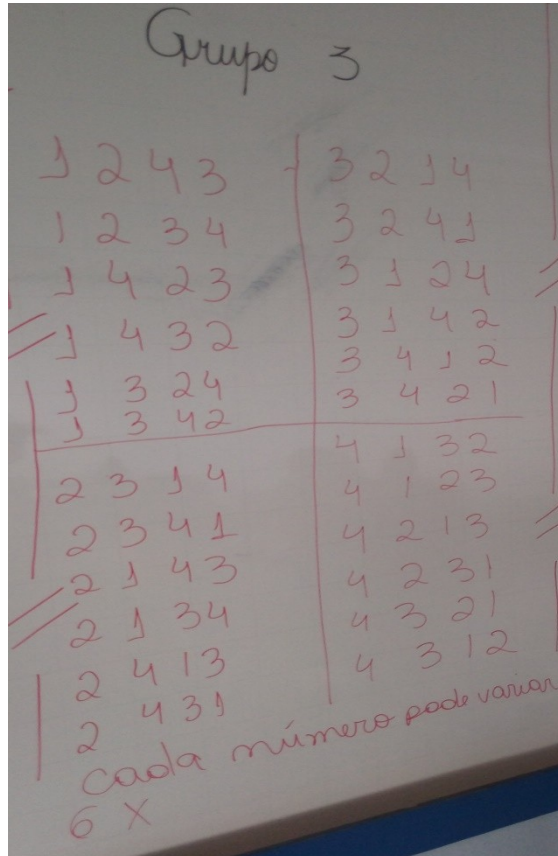 Grupo 3
1 2 4 3
1 2 3 4
1 4 2 3
1 4 3 2
1 3 2 4
1 3 4 2
3 2 1 4
3 2 4 1
3 1 2 4
3 1 4 2
3 4 1 2
3 4 2 1
2 3 1 4
2 3 4 1
2 1 4 3
2 1 3 4
2 4 1 3
2 4 3 1
4 1 3 2
4 1 2 3
4 2 1 3
4 2 3 1
4 3 2 1
4 3 1 2
cada número pode variar
6 X